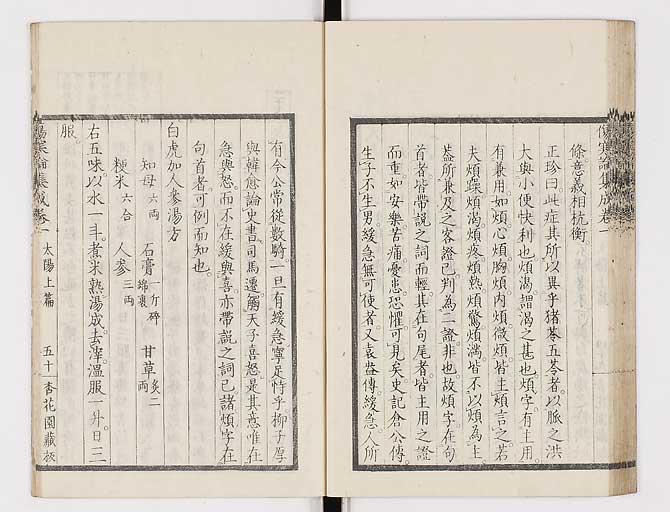 傷寒論集成卷一
條意義相抗衡
正珍曰此症其所以異乎猪苓五苓者以脈之洪
大與小便快利也煩渴謂渴之甚也煩字有主用
有兼用如煩心煩胸煩内煩微煩皆主煩言之若
夫煩躁煩渴煩疼煩熱煩驚煩滿皆不以煩為主
蓋所兼及之客證已判為二證非也故煩字在句
首者皆帶説之詞而輕其在句尾者皆主用之證
而重如安樂苦痛憂患恐懼可見矣史記倉公傳
生子不生男緩急無可使者又袁盎傳緩急人所
有今公常從數騎一旦有緩急寧足恃乎柳子厚
與韓愈論史書司馬遷觸天子喜怒是其意唯在
急與怒而不在緩與喜亦帶説之詞已諸煩字在
句首者可例而知也
白虎加人參湯方
知母六兩 石膏一斤碎綿裹 甘草炙二兩
粳米六合 人參三兩
右五味以水一斗煮米熟湯成去滓溫服一升日三
服
傷寒論集成卷一 太陽上篇 五十 杏花園藏板